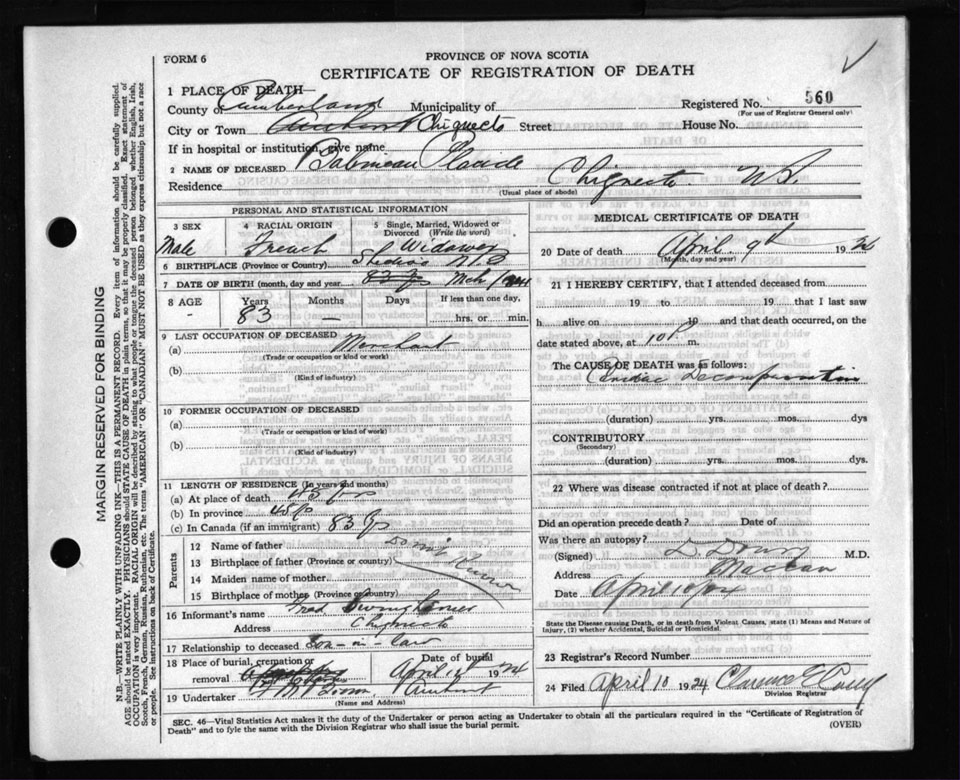 FORM 6
PROVINCE OF NOVA SCOTIA
CERTIFICATE OF REGISTRATION OF DEATH
1 PLACE OF DEATH—
County of Cumberland Municipality of Registered No. 560
(For use of Registrar General only)
City or Town Amherst Chignecto Street House No.
If in hospital or institution, give name
2 NAME OF DECEASED Placide
Residence Chignecto N.S.
(Usual place of abode)
PERSONAL AND STATISTICAL INFORMATION
3 SEX 4 RACIAL ORIGIN 5 Single, Married, Widowed or Divorced (Write the word)
Male French Widower
6 BIRTHPLACE (Province or Country) Shediac N.B
7 DATE OF BIRTH (month, day and year) 83 yrs Mch
8 AGE Years Months Days If less than one day,
- 83 — hrs. or min.
9 LAST OCCUPATION OF DECEASED
(a) Merchant
(Trade or occupation or kind or work)
(b)
(Kind of industry)
10 FORMER OCCUPATION OF DECEASED
(a)
(Trade or occupation or kind of work)
(b)
(Kind of industry)
11 LENGTH OF RESIDENCE (In years and months)
(a) At place of death 45 yrs
(b) In province 45
(c) In Canada (if an immigrant) 83 yrs
Parents
12 Name of father
13 Birthplace of father (Province or country)
14 Maiden name of mother
15 Birthplace of mother (Province or Country)
Dont Know
16 Informant's name Fred
Address Chignecto
17 Relationship to deceased Son-in law
18 Place of burial, cremation or removal Date of burial
April 1924
19 Undertaker Amherst
(Name and Address)
MEDICAL CERTIFICATE OF DEATH
20 Date of death April 9th 1924
(Month, day and year)
21 I HEREBY CERTIFY, that I attended deceased from
19 to 19 that I last saw
h alive on 19 and that death occurred, on the
date stated above, at 10 P m.
The CAUSE OF DEATH was as follows:
Cardiac Decompensation
(duration) yrs. mos. dys
CONTRIBUTORY
(Secondary)
(duration) yrs. mos. dys.
22 Where was disease contracted if not at place of death?
Did an operation precede death? Date of
Was there an autopsy?
(Signed) M.D.
Address Maccan
Date April 10/24
State the Disease causing Death, or in death from Violent Causes, state (1) Means and Nature of Injury, (2) whether Accidental, Suicidal or Homicidal.
23 Registrar's Record Number
24 Filed April 10 1924 Clarence E Casey
Division Registrar
SEC. 46—Vital Statistics Act makes it the duty of the Undertaker or person acting as Undertaker to obtain all the particulars required in the "Certificate of Registration of
Death" and to fyle the same with the Division Registrar who shall issue the burial permit.
(OVER)
MARGIN RESERVED FOR BINDING
N.B.—WRITE PLAINLY WITH UNFADING INK—THIS IS A PERMANENT RECORD. Every item of information should be carefully supplied.
AGE should be stated EXACTLY. PHYSICIANS should STATE CAUSE OF DEATH in plain terms, so that it may be properly classified. Exact statement of
OCCUPATION is very important. RACIAL ORIGIN will be described by stating to what people or tongue the deceased person belonged whether English, Irish,
Scotch, French, German, Russian, Ruthenian, etc. The terms "AMERICAN" OR "CANADIAN" MUST NOT BE USED as they express citizenship but not a race
or people. See instructions on back of Certificate.